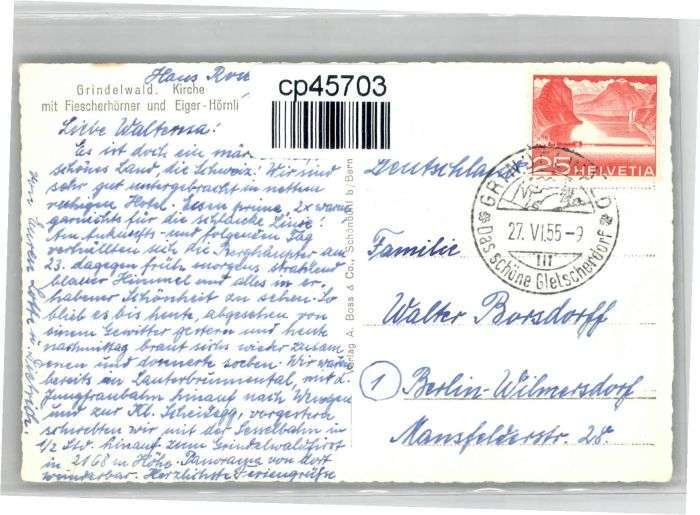 Haus
Grindelwald. Kirche
mit Fiescherhörner und Eiger-Hörnli
cp45703
Liebe
Es ist doch ein
schönes Land, die Schweiz! Wir sind
sehr gut untergebracht in nettem
ruhigem Hotel. Essen prima, 2x warm
garnichts für die schlanke Linie!
Am Ankunfts- und folgenden Tag
verhüllten sich die Berghäupter, am
23. dagegen früh morgens strahlend
blauer Himmel und alles in er-
habener Schönheit zu sehen. So
blieb es bis heute, abgesehen von
einem Gewitter gestern und heute
nachmittag braut sichs wieder zusam
men und donnerte soeben. Wir waren
bereits im Lauterbrunnental, mit d.
Jungfraubahn hinauf nach Wengen
und zur Kl. Scheidegg, vorgestern
schwebten wir mit der Sesselbahn in
1/2 Std. hinauf zum Grindelwaldfirst
in 2168 m Höhe. Panorama von dort
wunderbar. Herzlichste Feriengrüße
Lotte u.
Verlag A. Boss & Co., Schönbühl b/Bern
25 HELVETIA
GRINDELWALD
27. VI. 55-9
Das schöne Gletscherdorf
Deutschland
Familie
Walter Borsdorff
1 Berlin-Wilmersdorf
Mansfelderstr. 28.